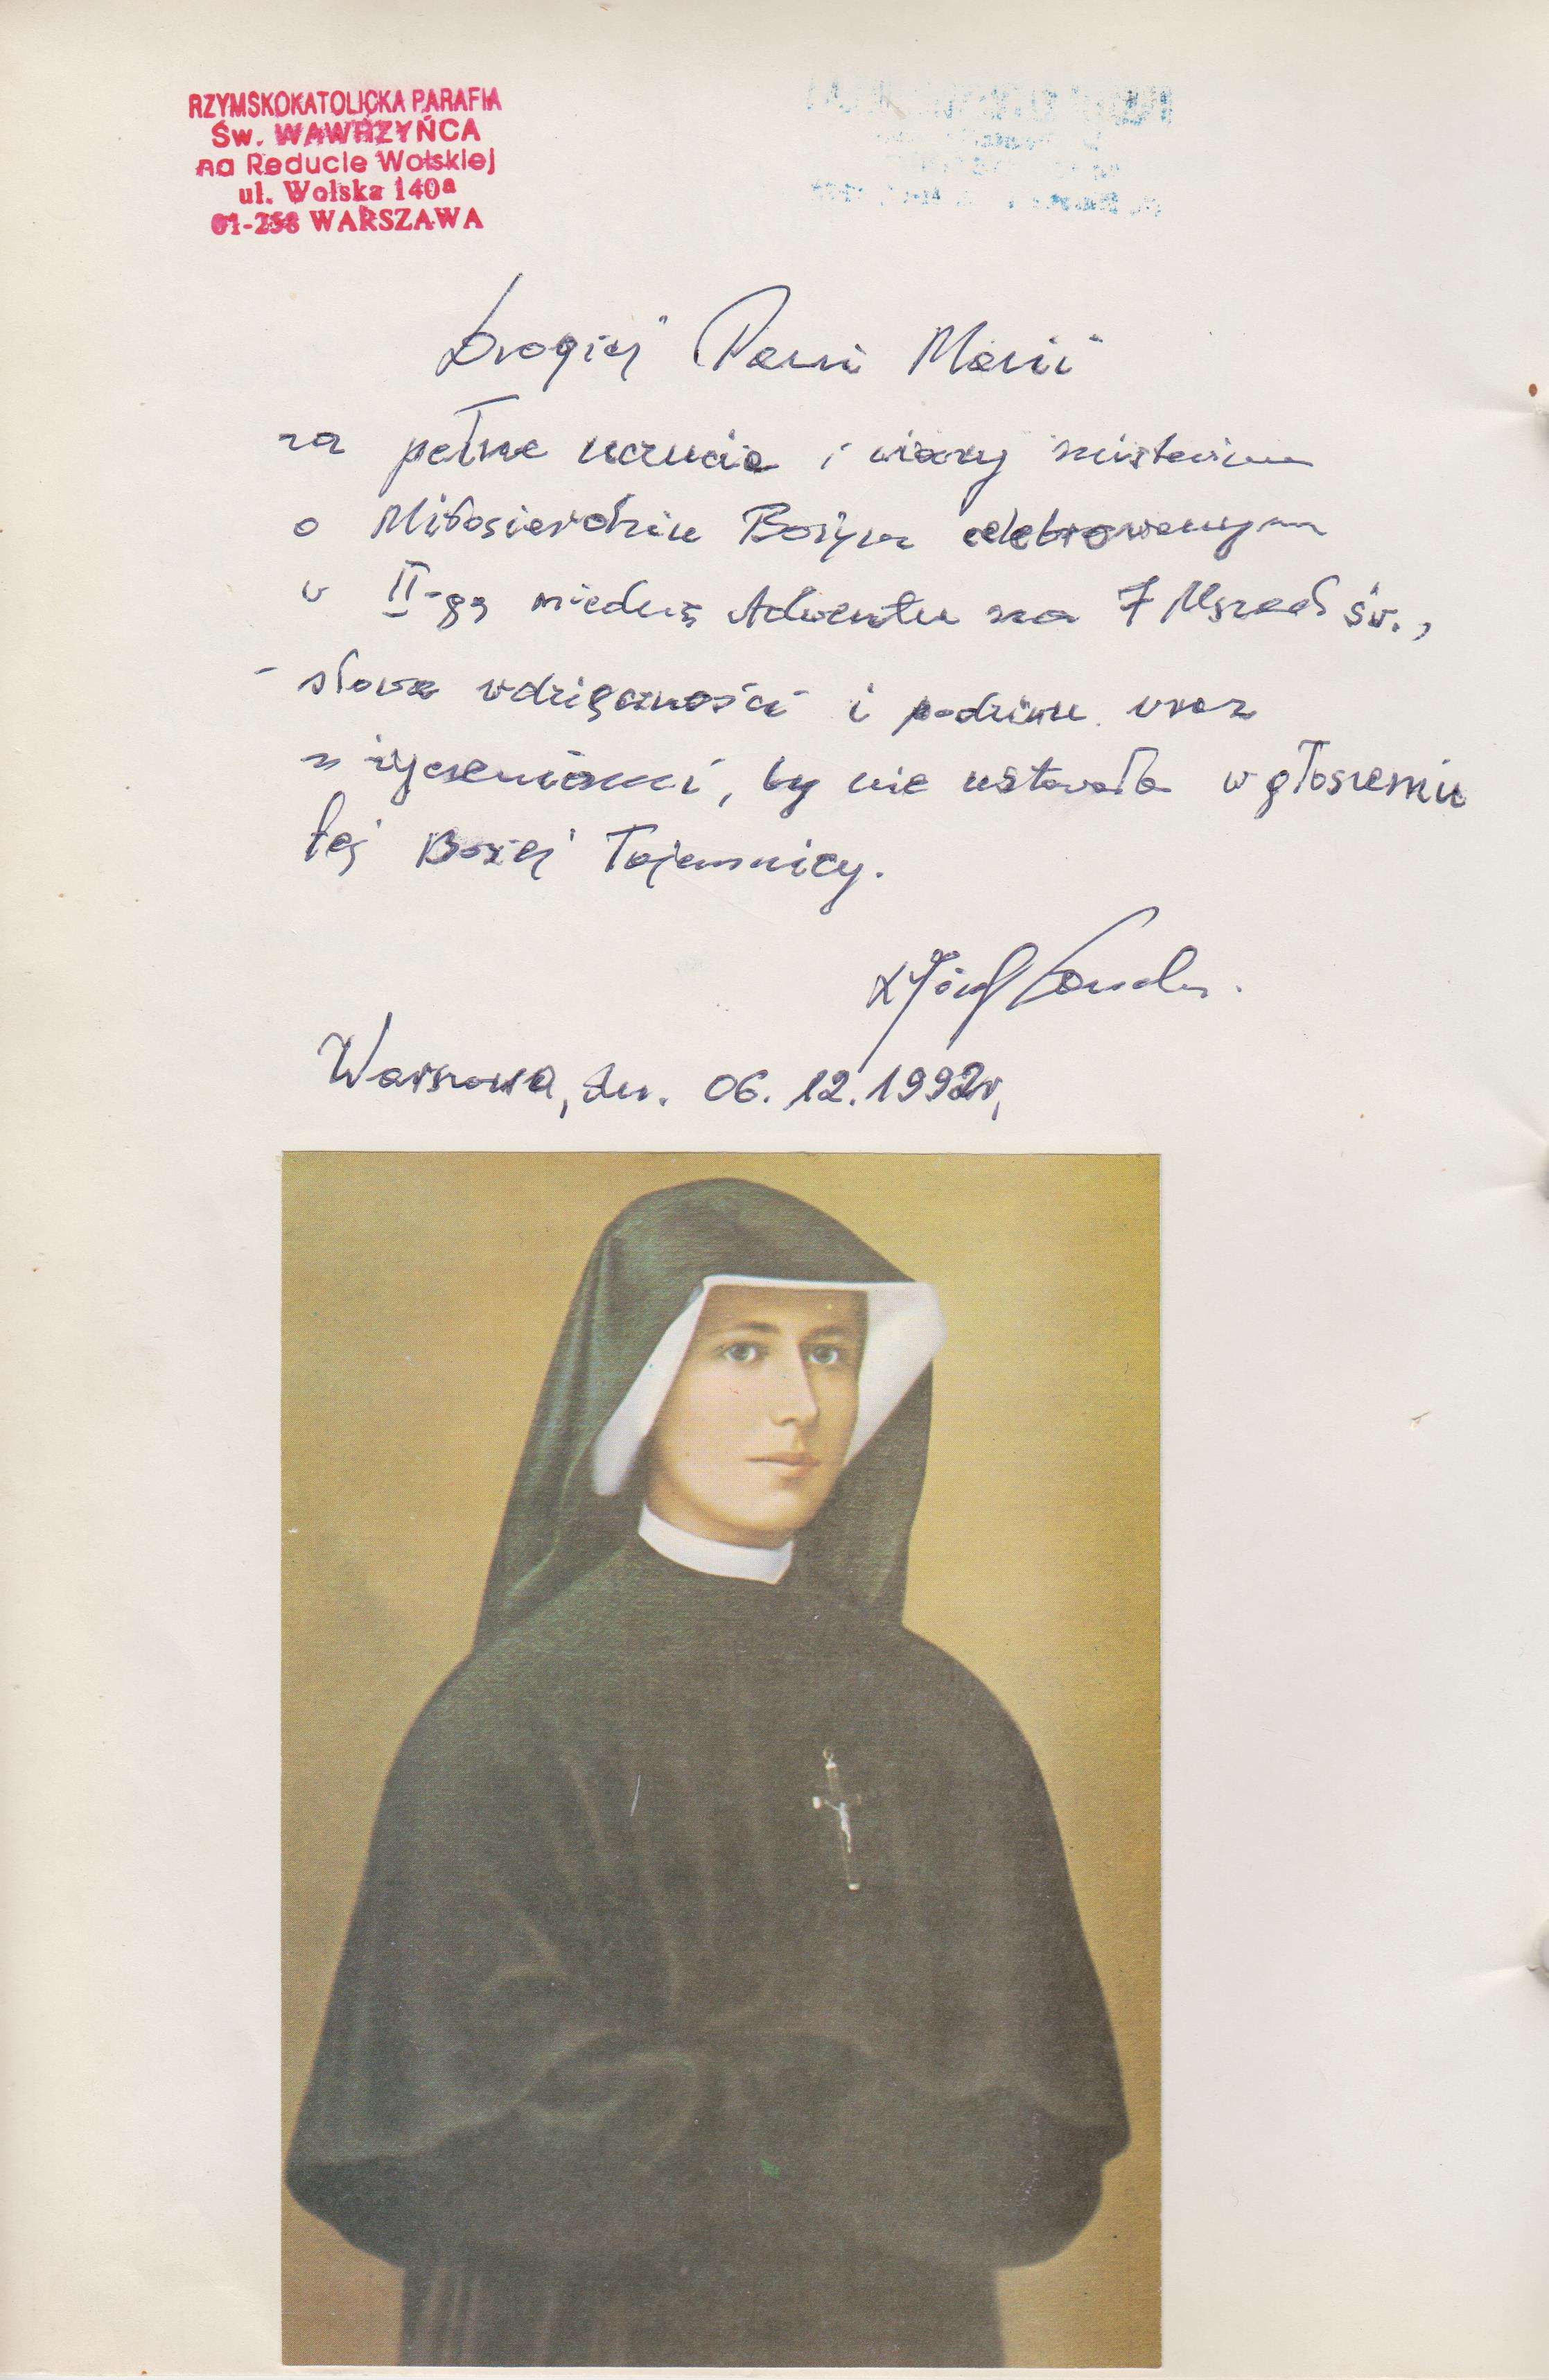 RZYMSKOKATOLICKA PARAFIA
Św. WAWRZYŃCA
na Reducie Wolskiej
ul. Wolska 140a
01-258 WARSZAWA
Drogiej Pani Marii
za pełne uczucia i wiary misterium
o Miłosierdziu Bożym celebrowanym
w II-gą niedzielę Adwentu na 7 Mszach św.,
- słowa wdzięczności i podziwu wraz
z życzeniami, by nie ustawała w głoszeniu
tej Bożej Tajemnicy.
x Józef
Warszawa, dn. 06.12.1992r,